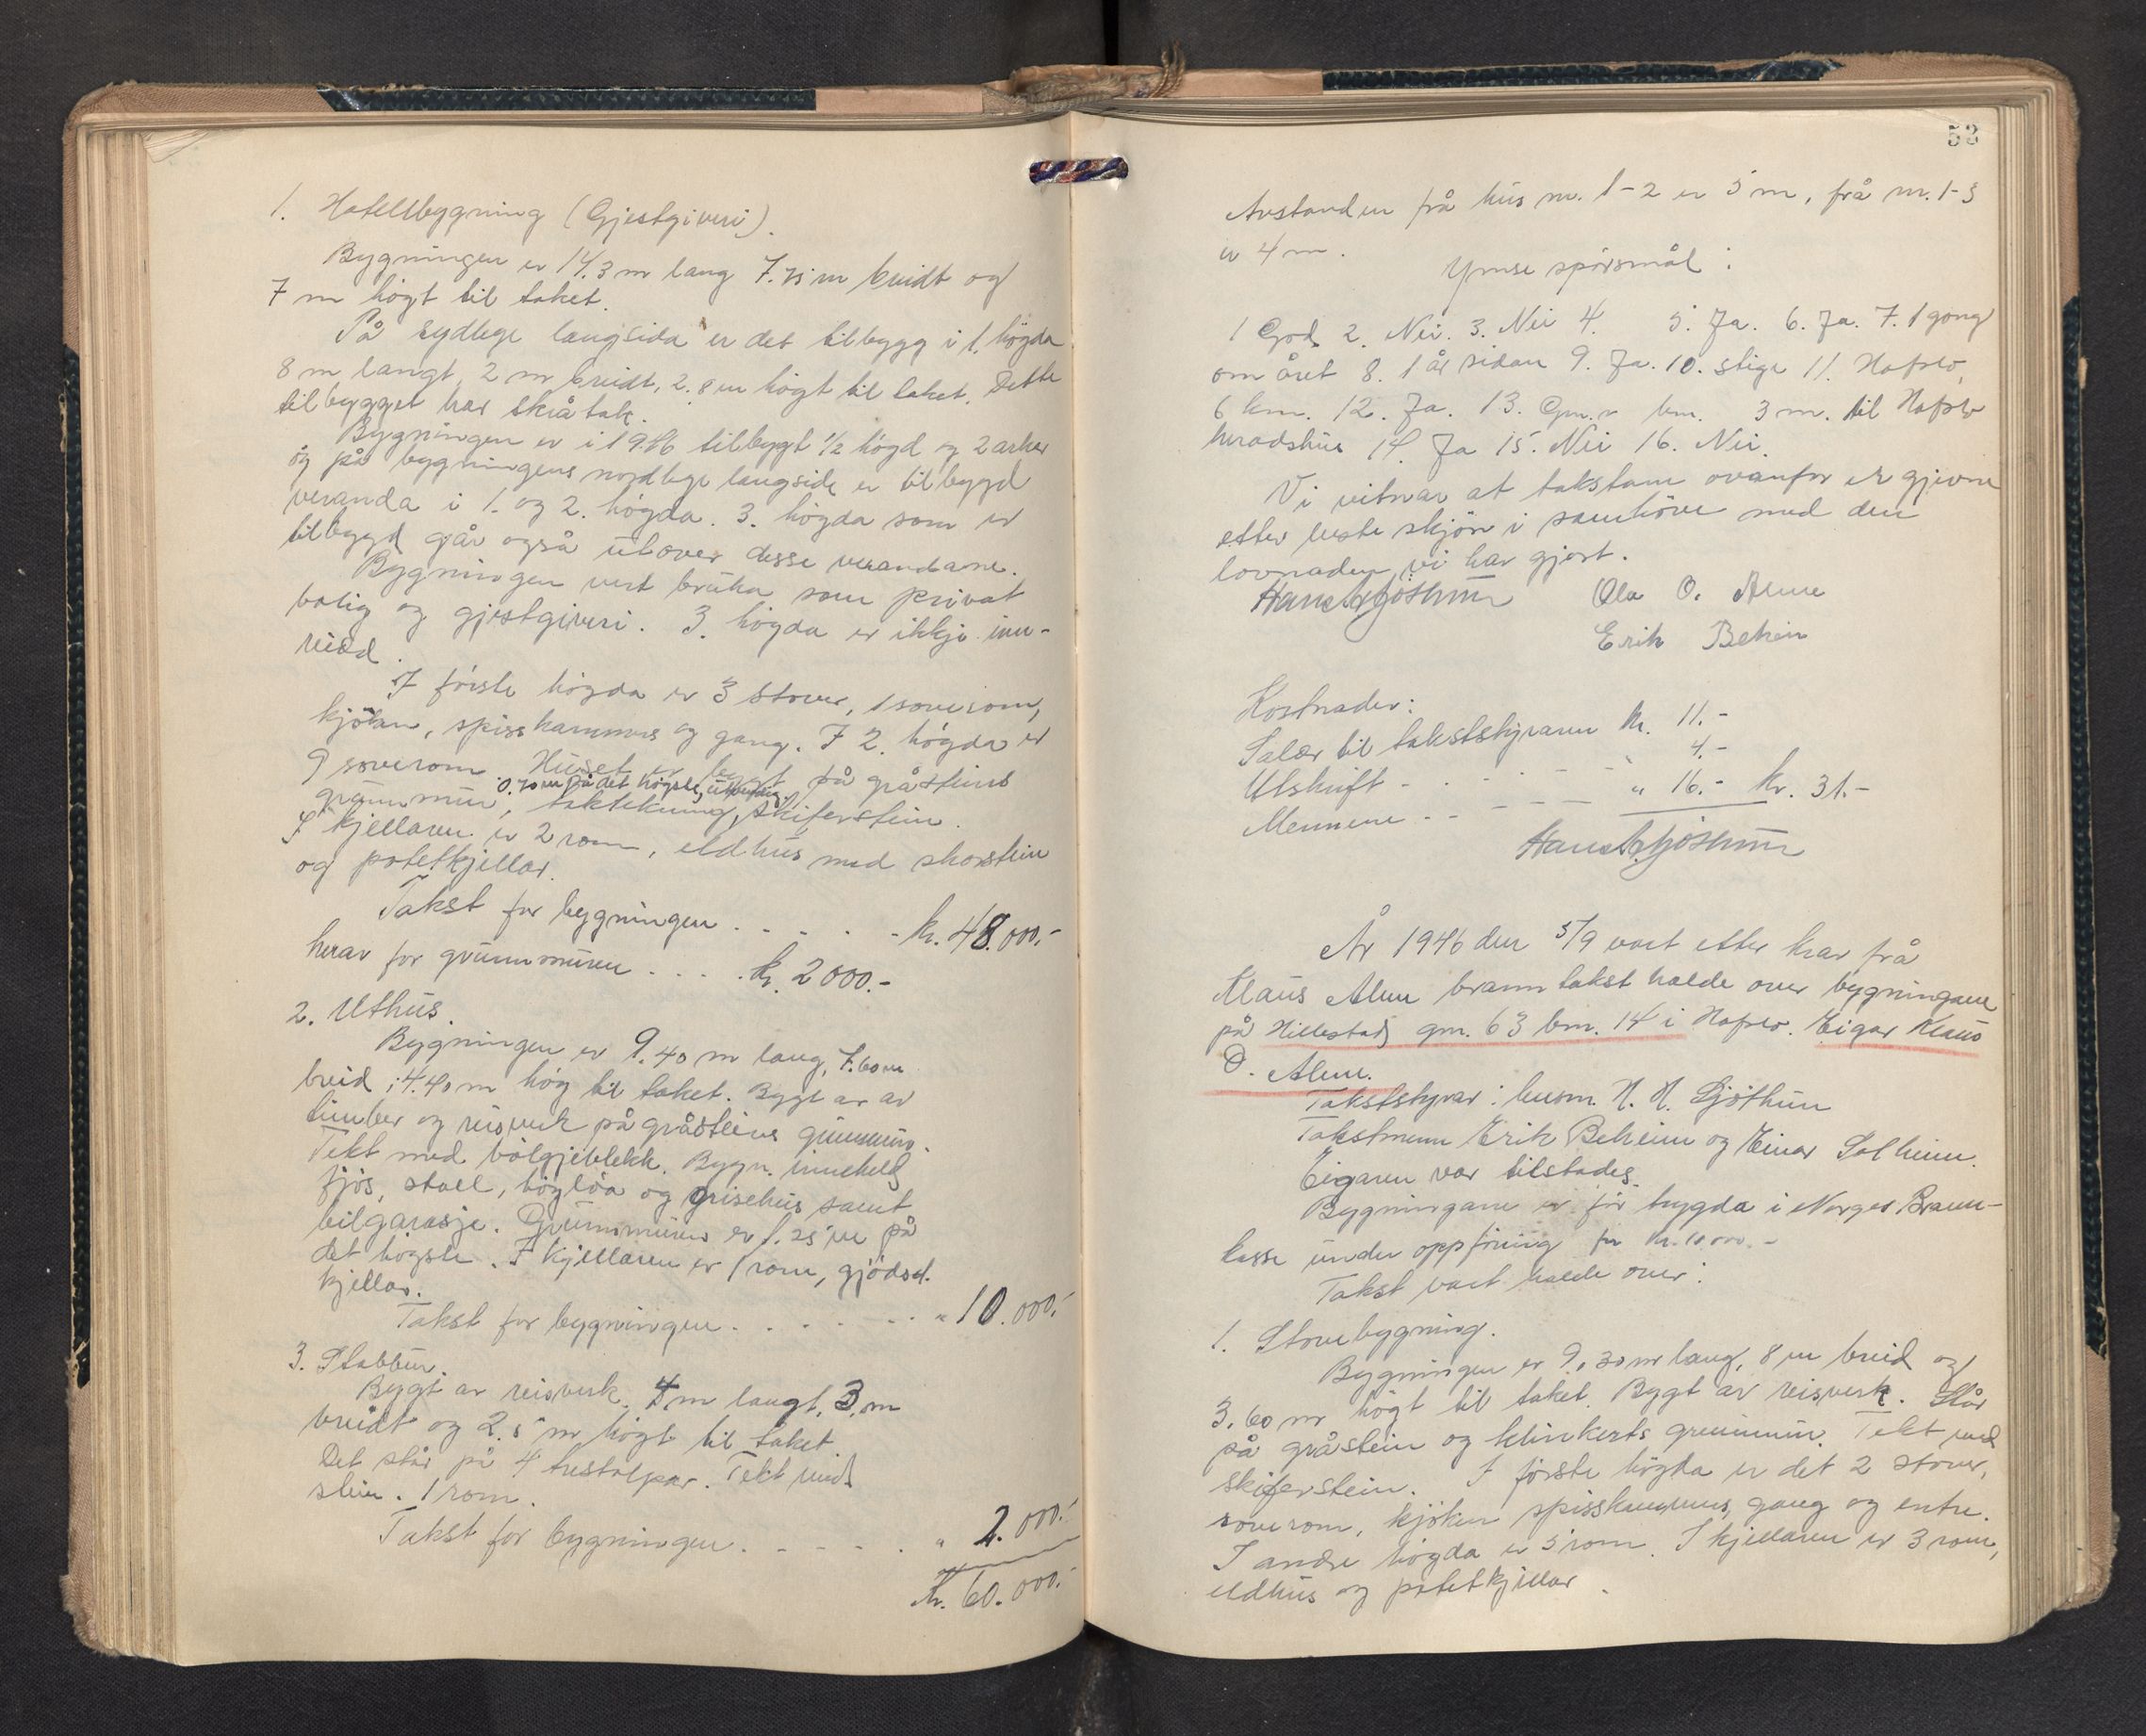 1. Hotellbygning (Gjestgiveri).
Bygningen er 14.3 m lang 7.75 m breidt og
7 m høgt til taket.
På sydlege langsida er det tilbygg i 1. högda
8 m langt, 2 m breidt, 2.8 m högt til taket. Dette
tilbygget har skråtak.
Bygningen er i 1946 tilbygt 1/2 högd og 2 arker
og på bygningens nordlege langside er tilbygd
veranda i 1. og 2. högda. 3. högda som er
tilbygd går også utover desse verandane.
Bygningen vert bruka som privat
bolig og gjestgiveri. 3. högda er ikkje inn-
reidd.
I förste högda er 3 stover, 1 soverom,
kjöken, spisskammers og gang. I 2. högda er
9 soverom. Huset er bygt på gråsteins
0.70 m på det högste,
grunnmur, taktekning skiferstein.
I kjellaren er 2 rom, eldhus med skorstein
og potetkjellar.
Takst for bygningen . . . . . kr. 48.000.-
herav for grunnmuren . . . . kr. 2000.-
2. Uthus.
Bygningen er 9.40 m lang, 7.60 m
breid, 4.40 m höy til taket. Bygt av av
timber og reisverk på gråsteins grunnmur.
Tekt med bölgjeblekk. Bygn. inneheld
fjös, stall, höylöa og grisehus samt
bilgarasje. Grunnmuren er 1.25 m på
det högste. I kjellaren er 1 rom, gjödsel-
kjellar.
Takst for bygningen . . . . . . . " 10.000.-
3. Stabbur.
Bygt av reisverk. 4 m langt, 3 m
breidt og 2.5 m högt til taket.
Det står på 4 trestolpar. Tekt med
stein. 1 rom.
Takst for bygningen . . . . . " 2.000.-
Kr. 60.000.-
53
Avstanden frå hus nr. 1-2 er 5 m, frå nr. 1-3
er 4 m.
Ymse spörsmål:
1 God 2. Nei. 3. Nei 4. 5. Ja. 6. Ja. 7. 1 gong
om året 8. 1 år sidan 9. Ja. 10. stige 11. Hafslo,
6 km. 12. Ja. 13. 3 m. til Hafslo
heradshus 14. Ja 15. Nei 16. Nei.
Vi vitnar at takstane ovanfor er gjevne
etter beste skjön i samhöve med den
lovnaden vi har gjort.
Hans H Ljöthun Ola O. Alme
Erik Beheim
Kostnader:
Salær til takststyraren kr. 11.-
Utskrift - - - - - " 4.-
Mennene - - - - - " 16.- kr. 31.-
Hans H Ljöthun
År 1946 den 5/9 vart etter krav frå
Klaus Alme branntakst halde over bygningane
på Hillestad gnr. 63 bnr. 14 i Hafslo. Eigar Klaus
O. Alme.
Takststyrar: lensm. H. H. Ljöthun
Takstmenn Erik Beheim og Einar Solheim.
Eigaren var tilstades.
Bygningane er för trygda i Norges Brann-
kasse under oppföring for kr. 10 000.-
Takst vart halde over:
1. Stovebygning.
Bygningen er 9.30 m lang, 8 m breid og
3.60 m högt til taket. Bygt av reisverk. Står
på gråstein og klinkerts grunnmur. Tekt med
skiferstein. I förste högda er det 2 stover,
soverom, kjöken spisskammers, gang og entre.
I andre högda er 5 rom. I kjellaren er 3 rom,
eldhus og potetkjellar.